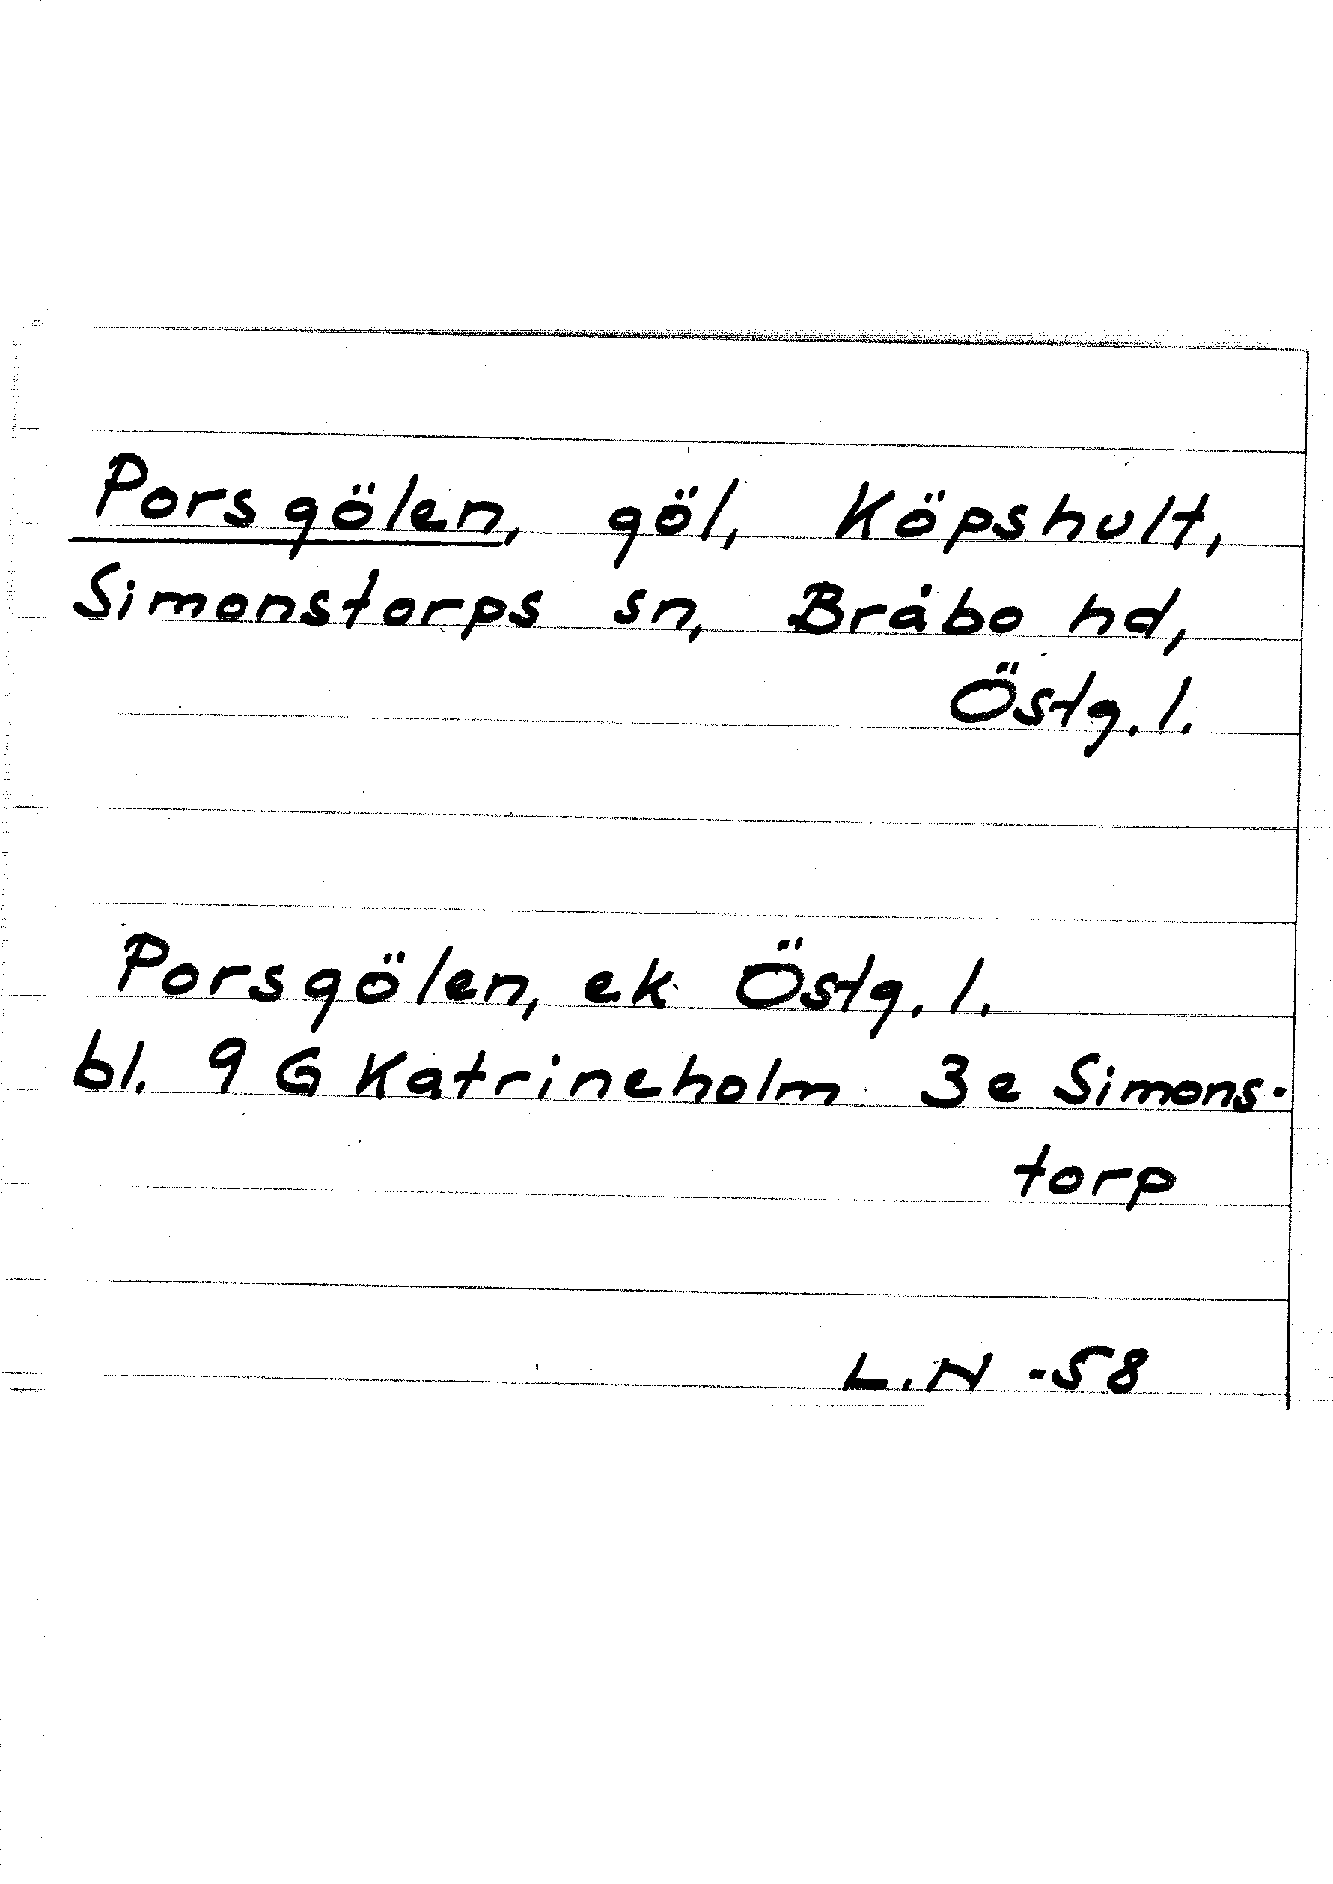 Porsgölen, göl, Köpshult,
Simonstorps sn, Bråbo hd,
Östg. l.
Porsgölen, ek Östg. l.
bl. 9 G Katrineholm 3e Simons-
torp
L.N -58